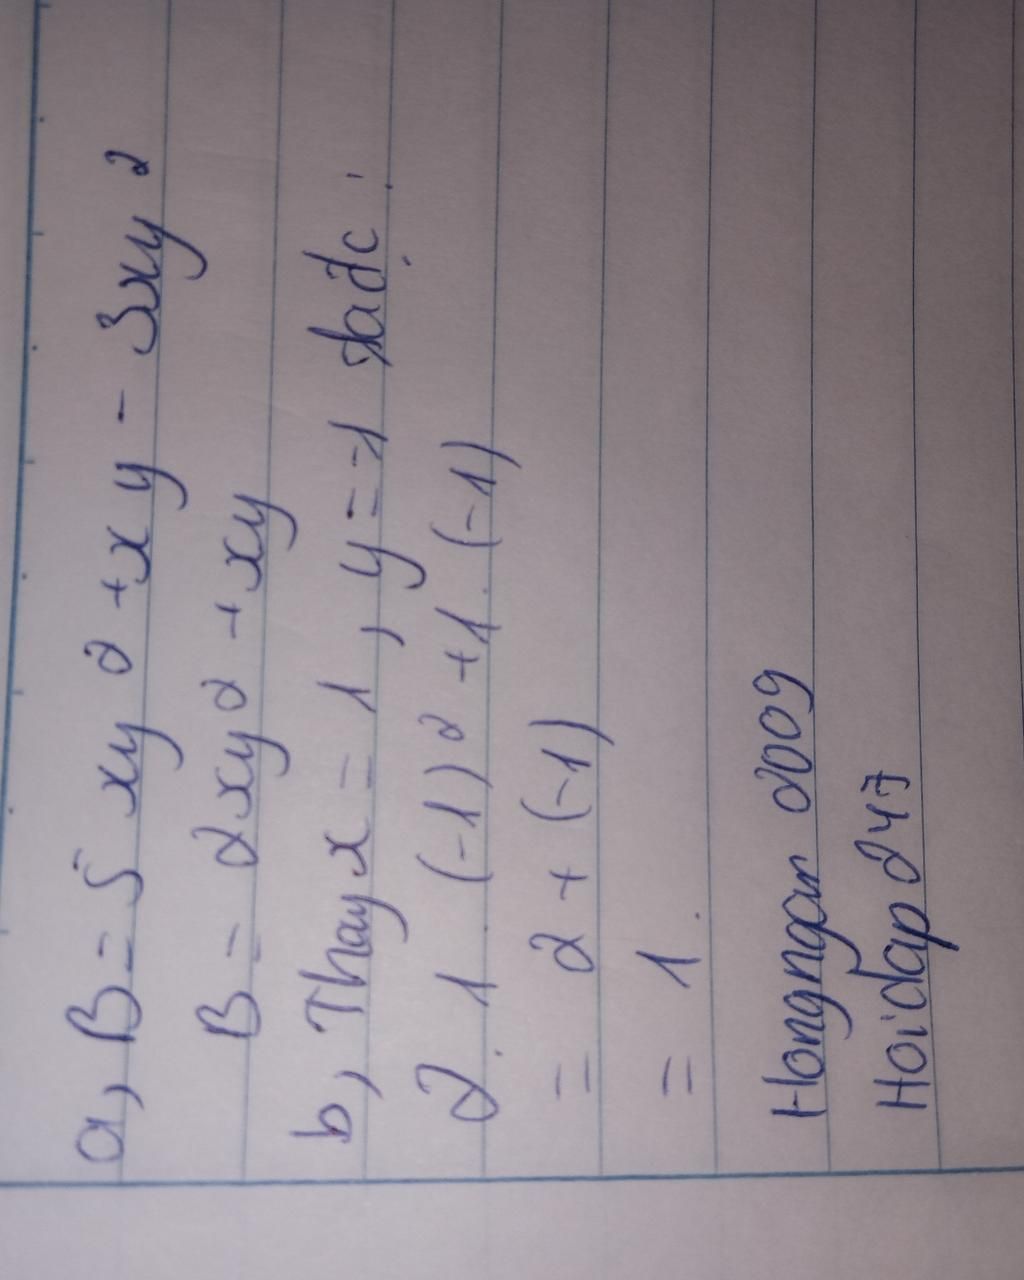 a, B = 5 xy² + xy - 3xy²
B = 2xy² + xy
b, Thay x = 1, y = -1 ta đc:
2.1.(-1)² + 1.(-1)
= 2 + (-1)
= 1.
Hongngan 2009
Hoidap 247